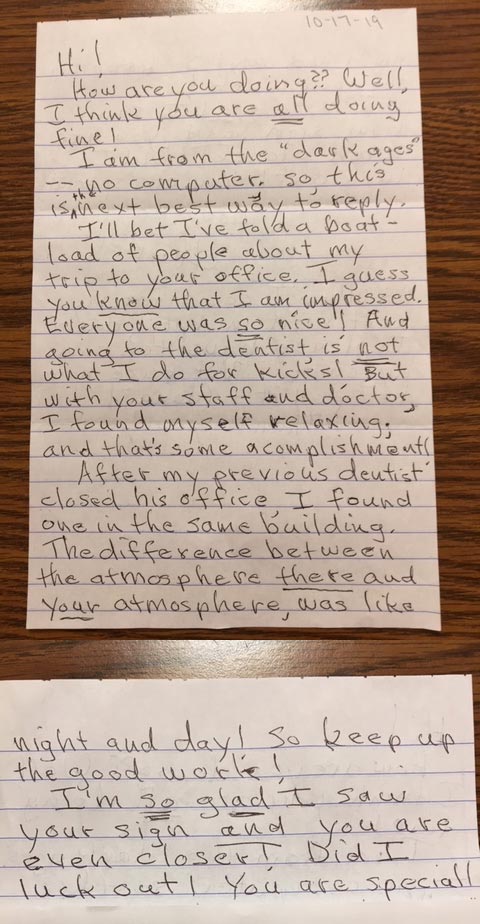 10-17-19
Hi!
How are you doing?? Well,
I think you are all doing
fine!
I am from the "dark ages"
-- no computer. so, this
is the next best way to reply.
I'll bet I've told a boat-
load of people about my
trip to your office. I guess
you know that I am impressed.
Everyone was so nice! And
going to the dentist is not
what I do for kicks! But
with your staff and doctor,
I found myself relaxing;
and that's some acomplishment!
After my previous dentist
closed his office I found
one in the same building.
The difference between
the atmosphere there and
your atmosphere, was like
night and day! So keep up
the good work!
I'm so glad I saw
your sign and you are
even closer! Did I
luck out! You are special!